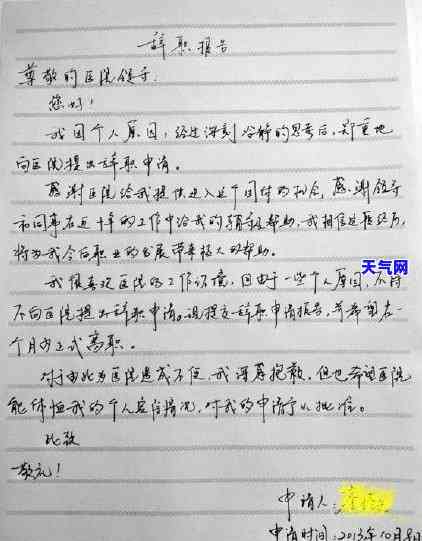 辞职报告
尊敬的医院领导：
您好！
我因个人原因，经过深刻冷静的思考后，郑重地
向医院提出辞职申请。
感谢医院给我提供进入这个团体的机会，感谢领导
和同事在近十年的工作中给我的 帮助，我相信这段经历，
将为我今后职业的发展带来极大的帮助。
我很喜欢医院的工作环境，但由于一些个人原因，不得
不向医院提出辞职申请。现提交辞职申请报告，并希望在一
个月内正式离职。
对于由此为医院造成不便，我深感抱歉，但也希望医院
能体恤我的个人实际情况，对我的申请予以批准。
此致
敬礼！
申请人：
申请时间：2013年10月8日
天气网